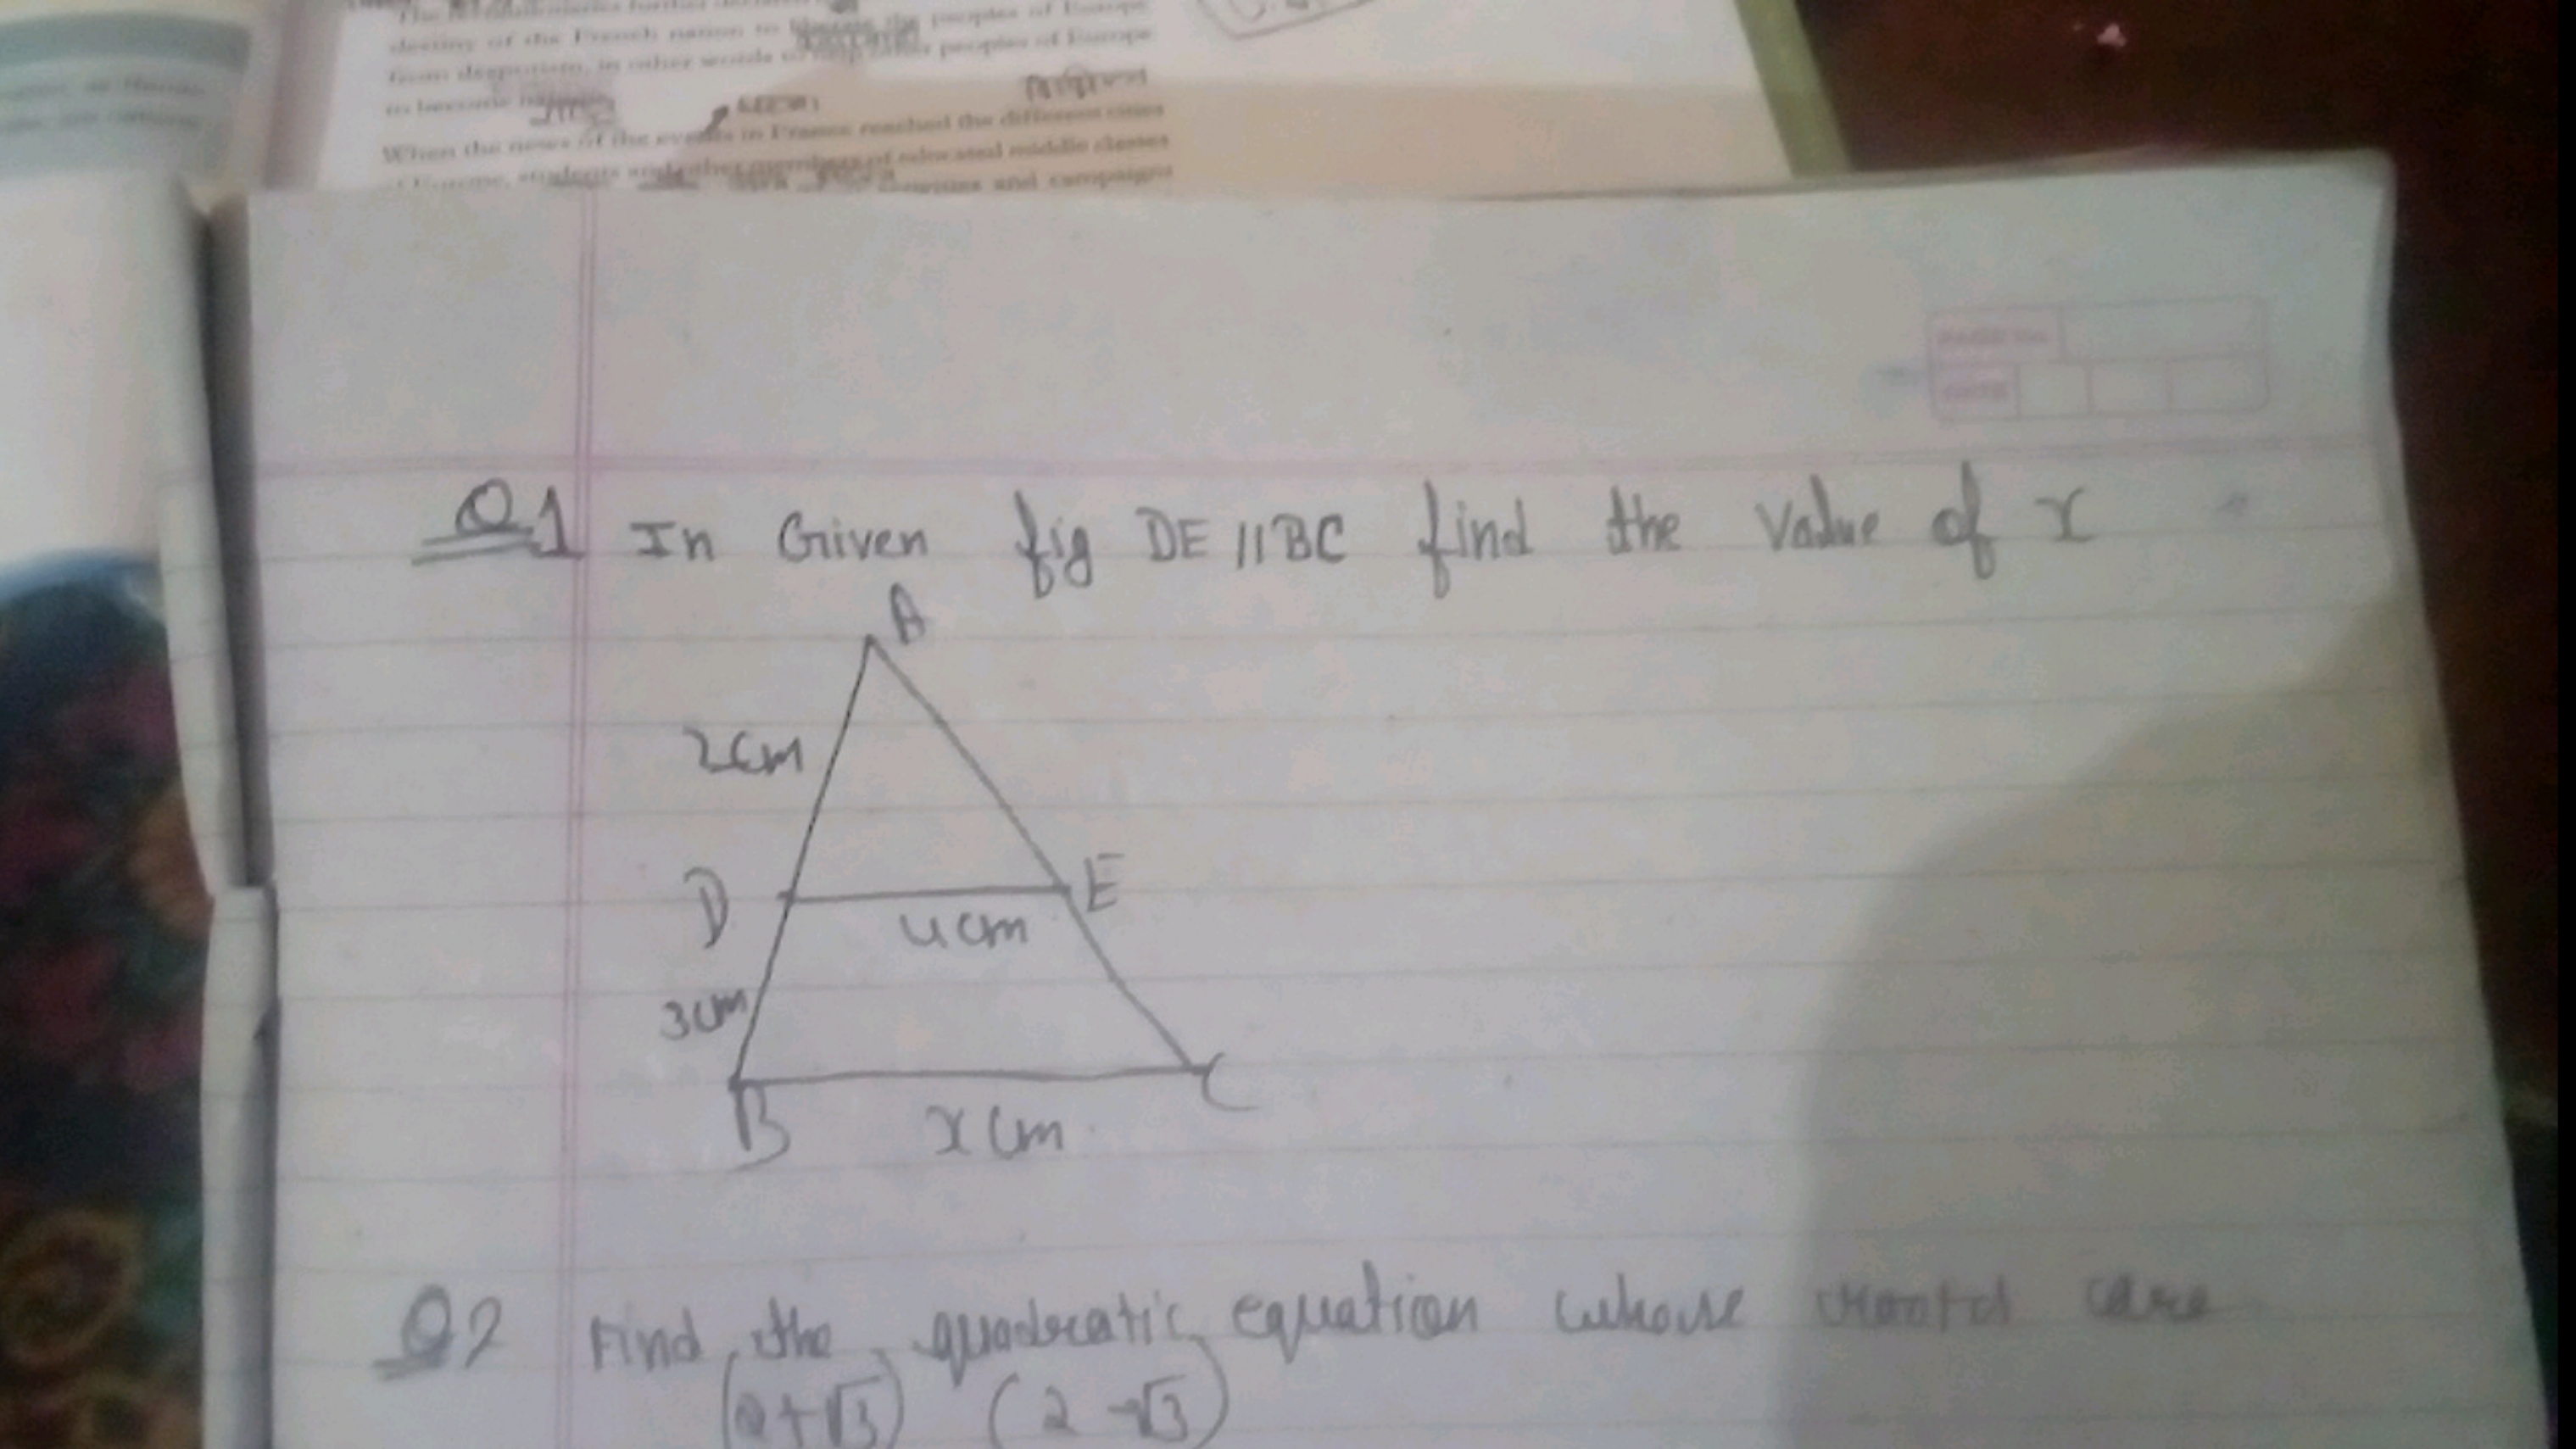 destiny of the French nation to liberate the peoples of Europe
from despotism, in other words to help other peoples of Europe
to become
When the news of the events in France reached the different cities
students and other members of educated middle classes
and campaigns
Q1 In Given fig DE || BC find the value of x
A
2cm
D E
4cm
3cm
B C
x cm
Q2 Find the quadratic equation whose roots are
(2+√3) (2-√3)